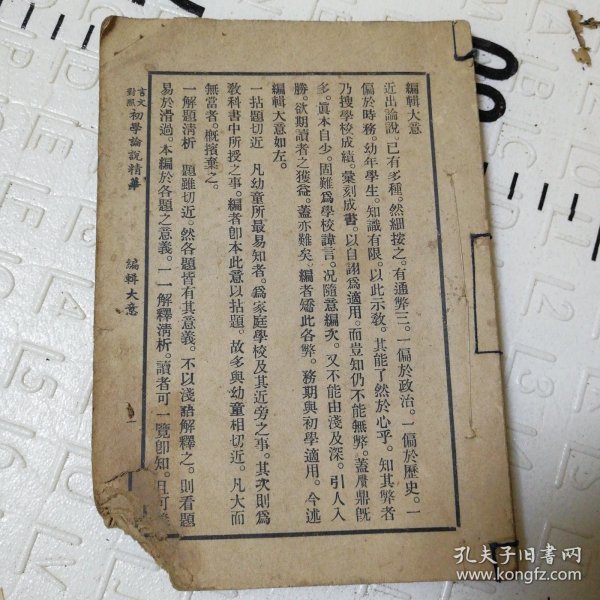 編輯大意
近出論說。已有多種。然細按之。有通弊三。一偏於政治。一偏於歷史。一
偏於時務。幼年學生。知識有限。以此示敎。其能了然於心乎。知其弊者
乃搜學校成績。彙刻成書。以自詡爲適用。而豈知仍不能無弊。蓋贋鼎旣
多。眞本自少。固難爲學校諱言。况隨意編次。又不能由淺及深。引人入
勝。欲期讀者之獲益。蓋亦難矣。編者矯此各弊。務期與初學適用。今述
編輯大意如左。
一拈題切近　凡幼童所最易知者。爲家庭學校及其近旁之事。其次則爲
敎科書中所授之事。編者卽本此意以拈題。故多與幼童相切近。凡大而
無當者。槪擯棄之。
一解題淸析　題雖切近。然各題皆有其意義。不以淺語解釋之。則看題
易於滑過。本編於各題之意義。一一解釋淸析。讀者可一覽卽知。且可
言文對照 初學論說精華 編輯大意 一
孔夫子旧书网
www.kongfz.com